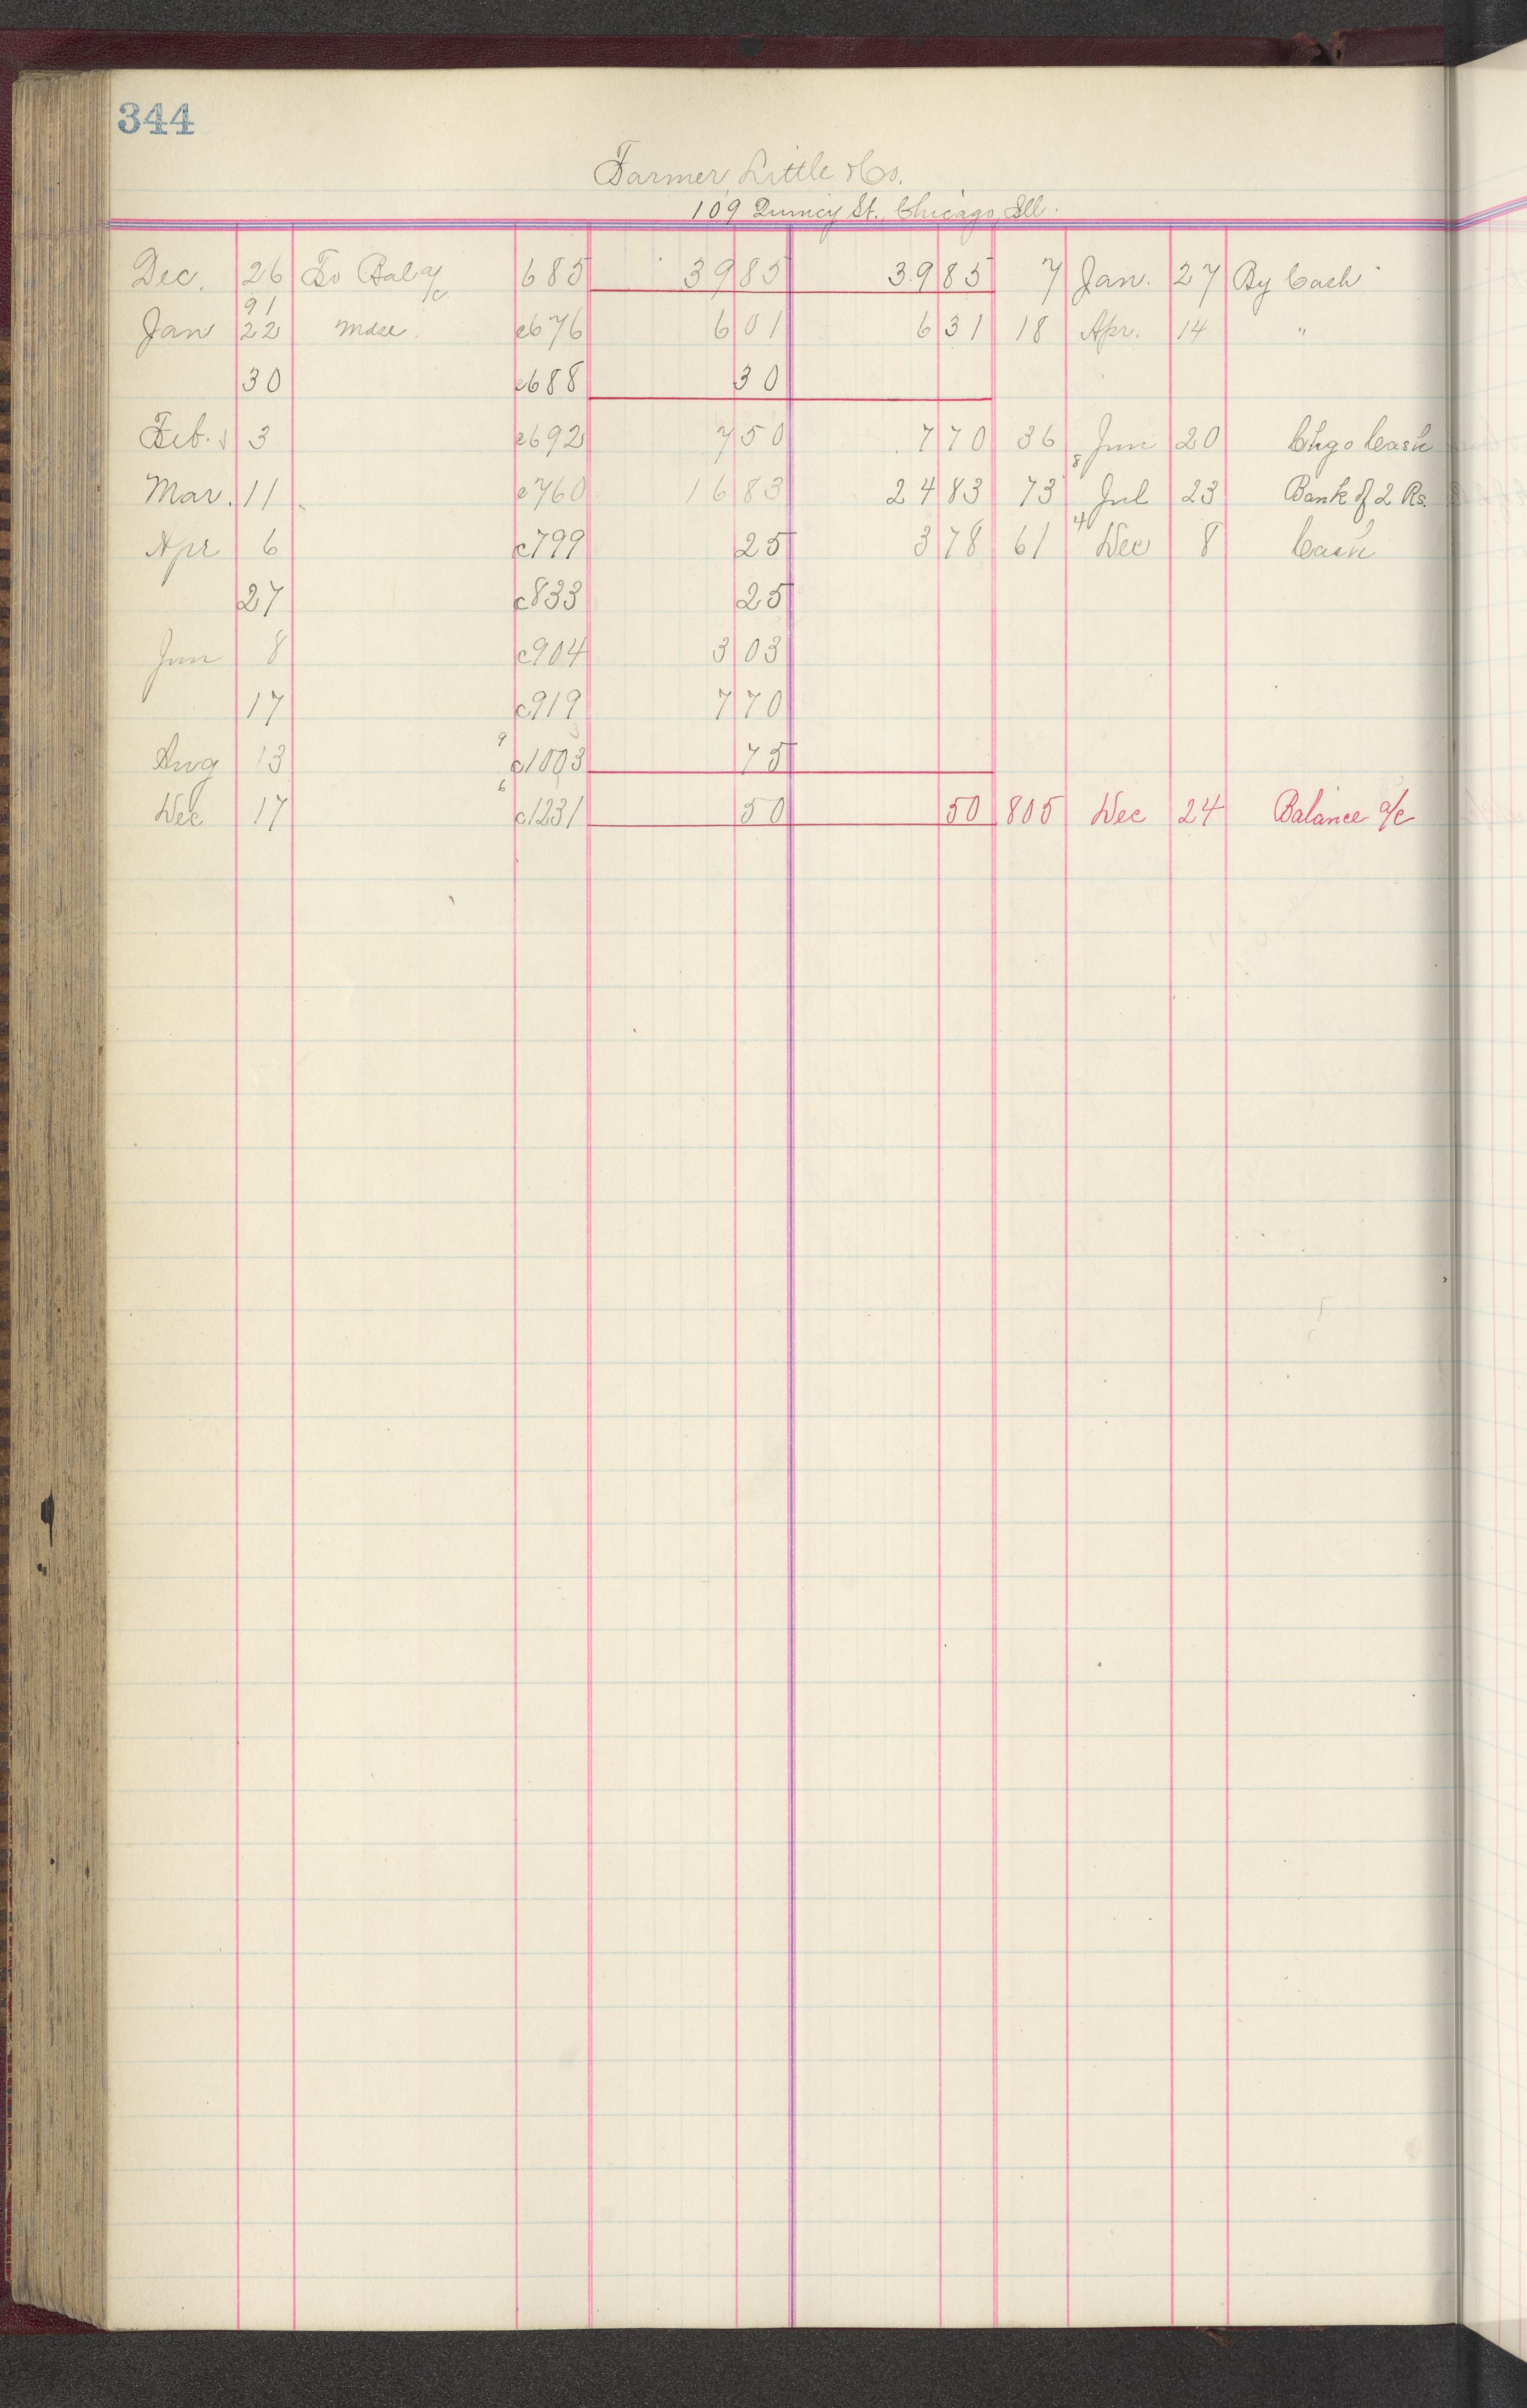 344
Farmer, Little & Co.
109 Quincy St., Chicago, Ill.
Dec. 26 To Bal a/c 685 39 85 39 85 7 Jan. 27 By Cash
91
Jan 22 Mdse. c676 6 01 6 31 18 Apr. 14 "
30 c688 30
Feb. 3 c692 7 50 7 70 36 Jun 20 Chgo Cash
Mar. 11 c760 16 83 24 83 73 8 Jul 23 Bank of 2 Rs.
Apr 6 c799 25 3 78 61 4 Dec 8 Cash
27 c833 25
Jun 8 c904 3 03
17 c919 7 70
Aug 13 9 c1003 75
Dec 17 6 c1231 50 50 805 Dec 24 Balance a/c